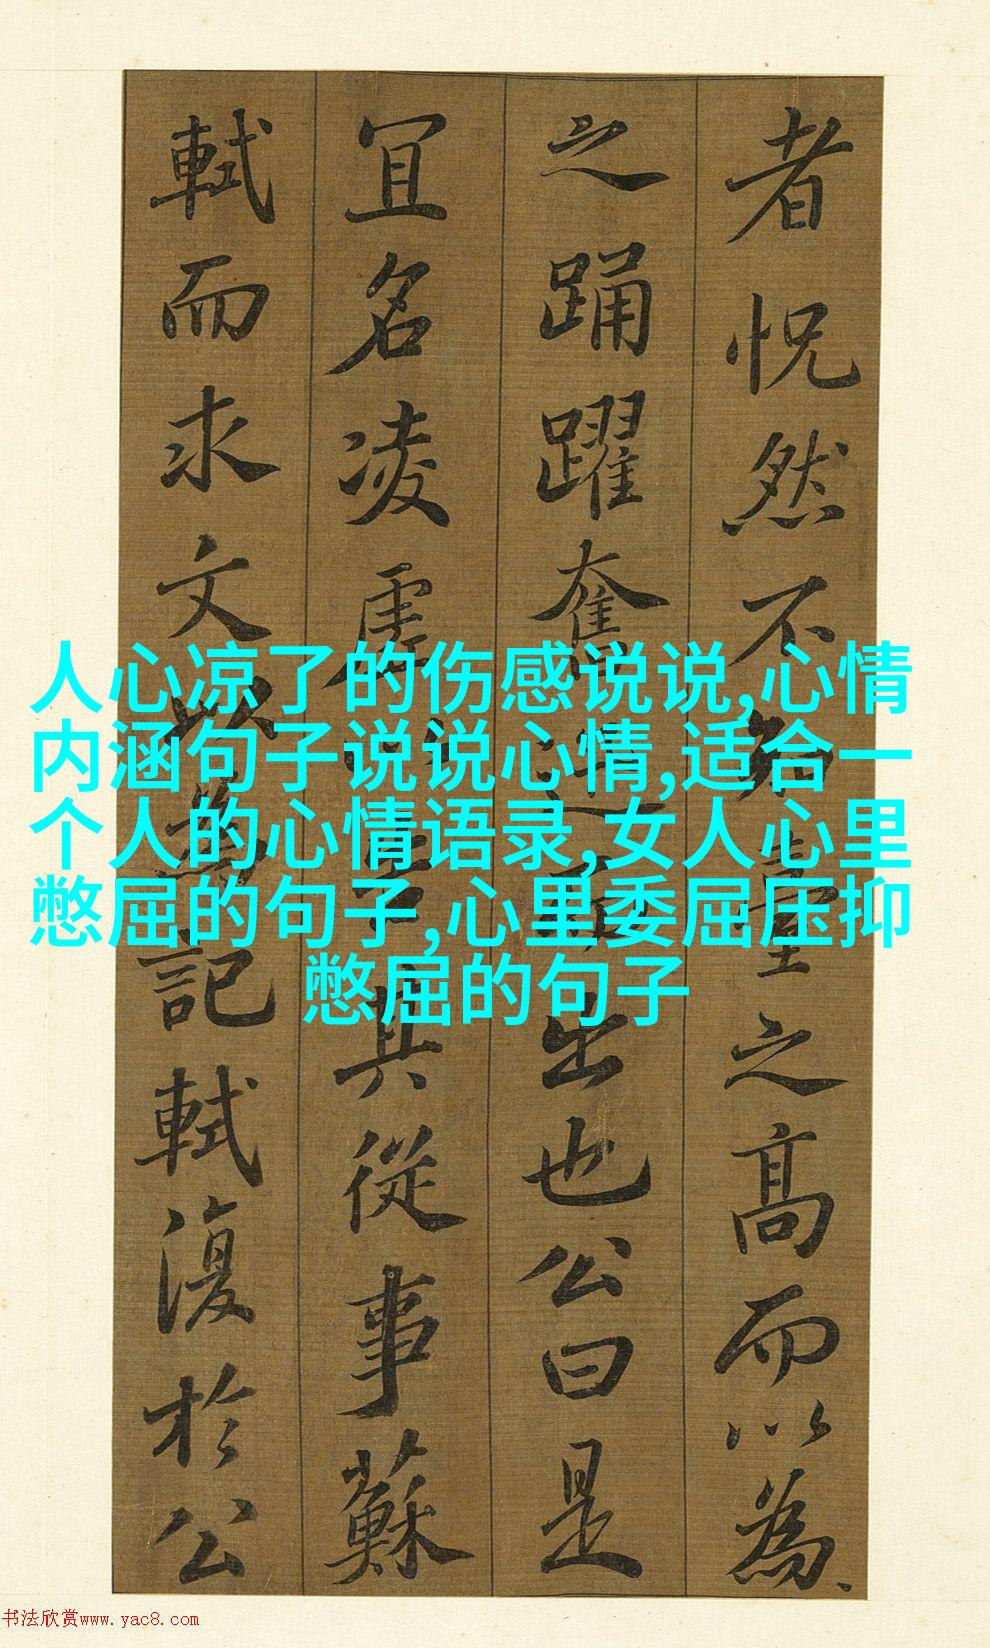 者怳然不知臺之髙而以為
之踊躍奮迅而出也公曰是
冝名凌虗以告其從事蘇
軾而求文以為記軾復於公
人心凉了的伤感说说,心情
内涵句子说说心情,适合一
个人的心情语录,女人心里
憋屈的句子,心里委屈压抑
憋屈的句子
书法欣赏www.yac8.com